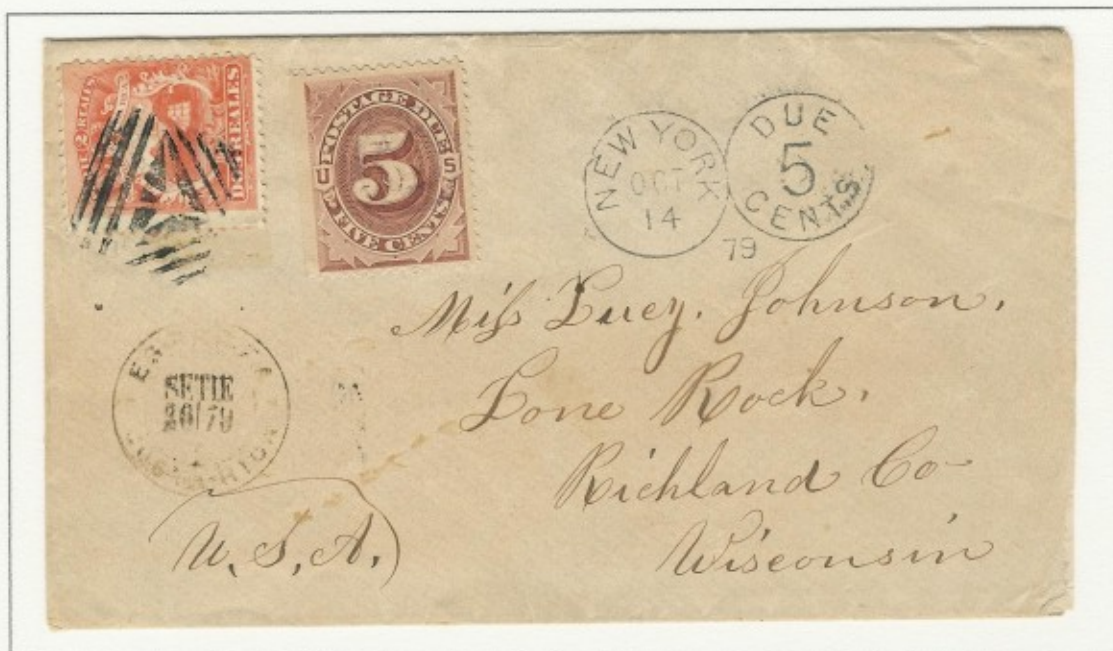 2 REALES
DOS REALES
POSTAGE DUE
U 5 S
FIVE CENTS
NEW YORK
OCT
14
79
DUE
5
CENTS
SETIE
79
Miss Lucy. Johnson.
Lone Rock.
Richland Co
Wisconsin
U.S.A.